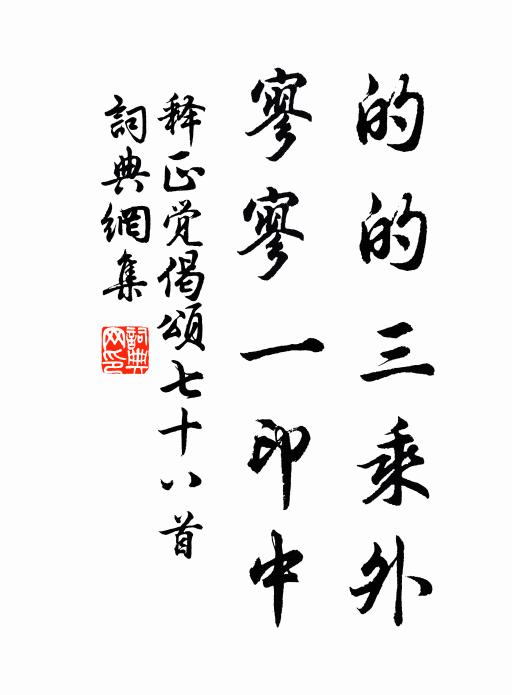 的的三乘外
寥寥一印中
释正觉偈頌七十八首
詞典網集
詞典网印